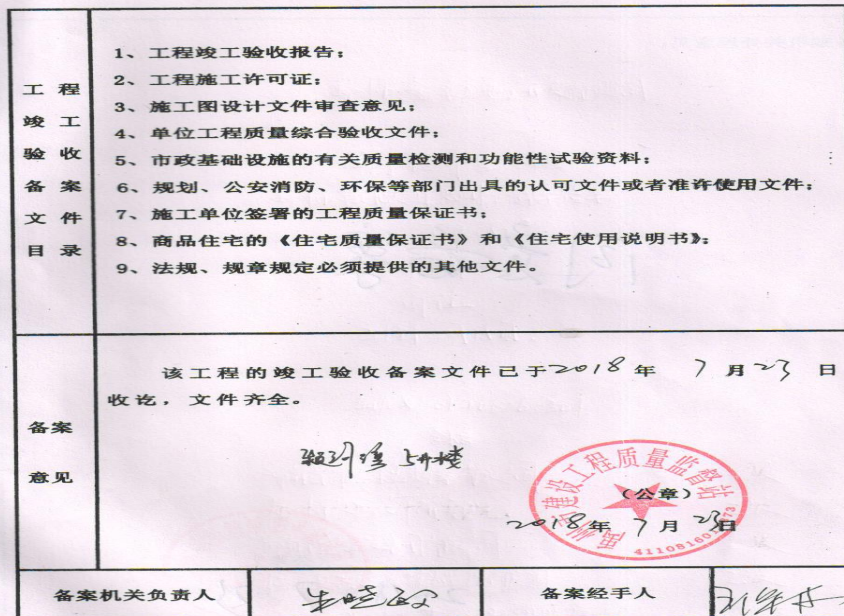 工程
竣工
验收
备案
文件
目录
1、工程竣工验收报告；
2、工程施工许可证；
3、施工图设计文件审查意见；
4、单位工程质量综合验收文件；
5、市政基础设施的有关质量检测和功能性试验资料；
6、规划、公安消防、环保等部门出具的认可文件或者准许使用文件；
7、施工单位签署的工程质量保证书；
8、商品住宅的《住宅质量保证书》和《住宅使用说明书》；
9、法规、规章规定必须提供的其他文件。
备案
意见
该工程的竣工验收备案文件已于2018年 7月23日
收讫，文件齐全。
禹州市建设工程质量监督站
（公章）
2018年 7月23日
备案机关负责人
备案经手人